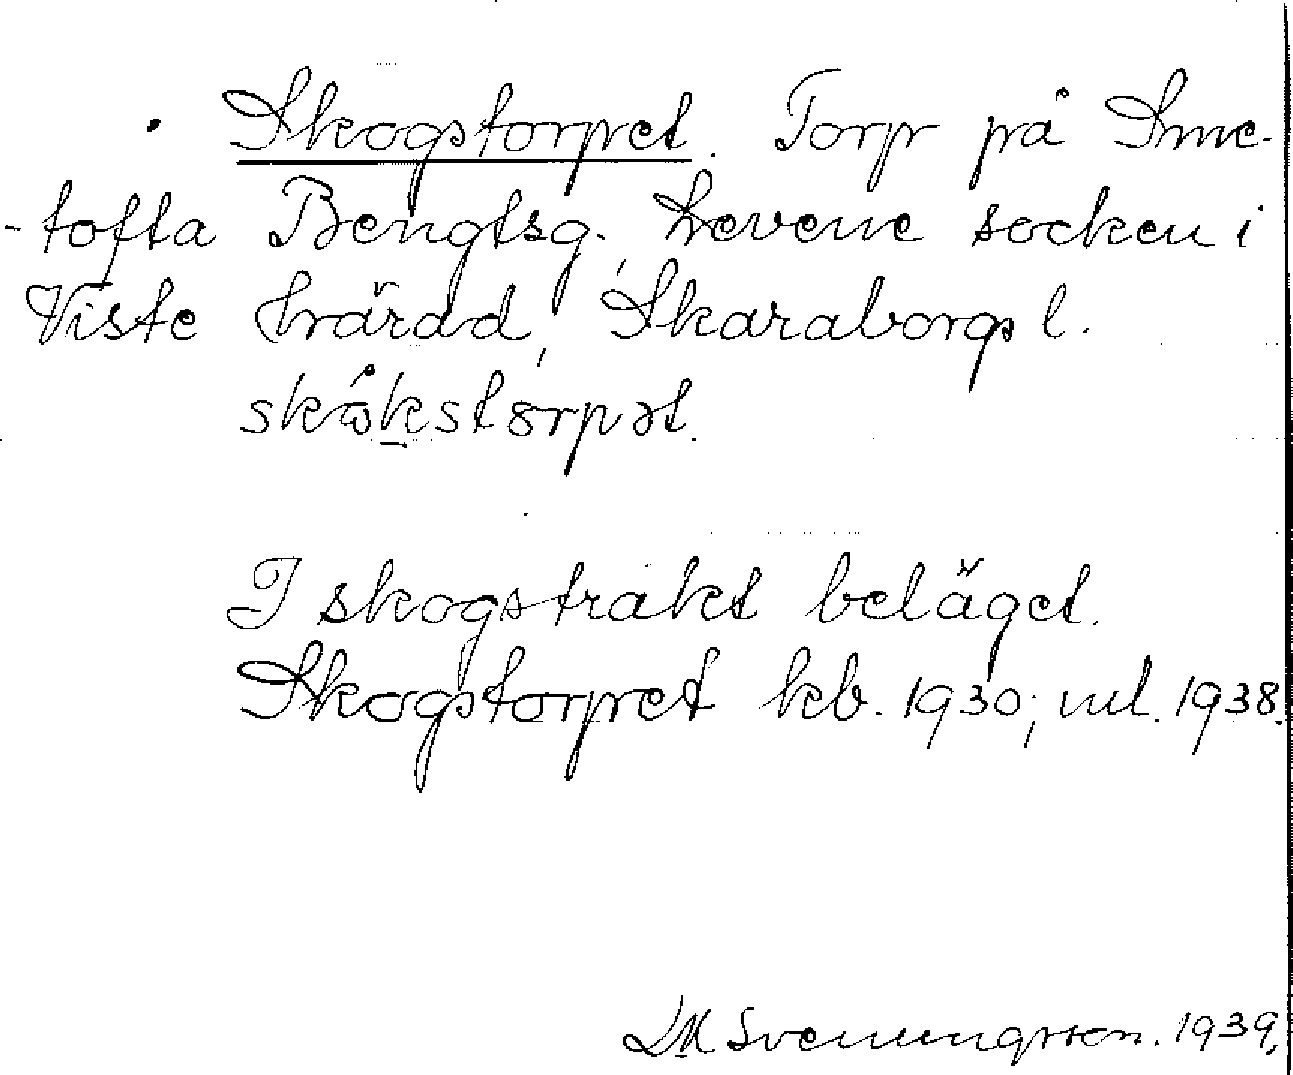 Skogstorpet. Torp på Sme-
-tofta Bengtsg., Levene socken i
Viste härad, Skaraborgs l.
I skogstrakt beläget.
Skogstorpet kb. 1930; ml. 1938.
Svenungsson. 1939.